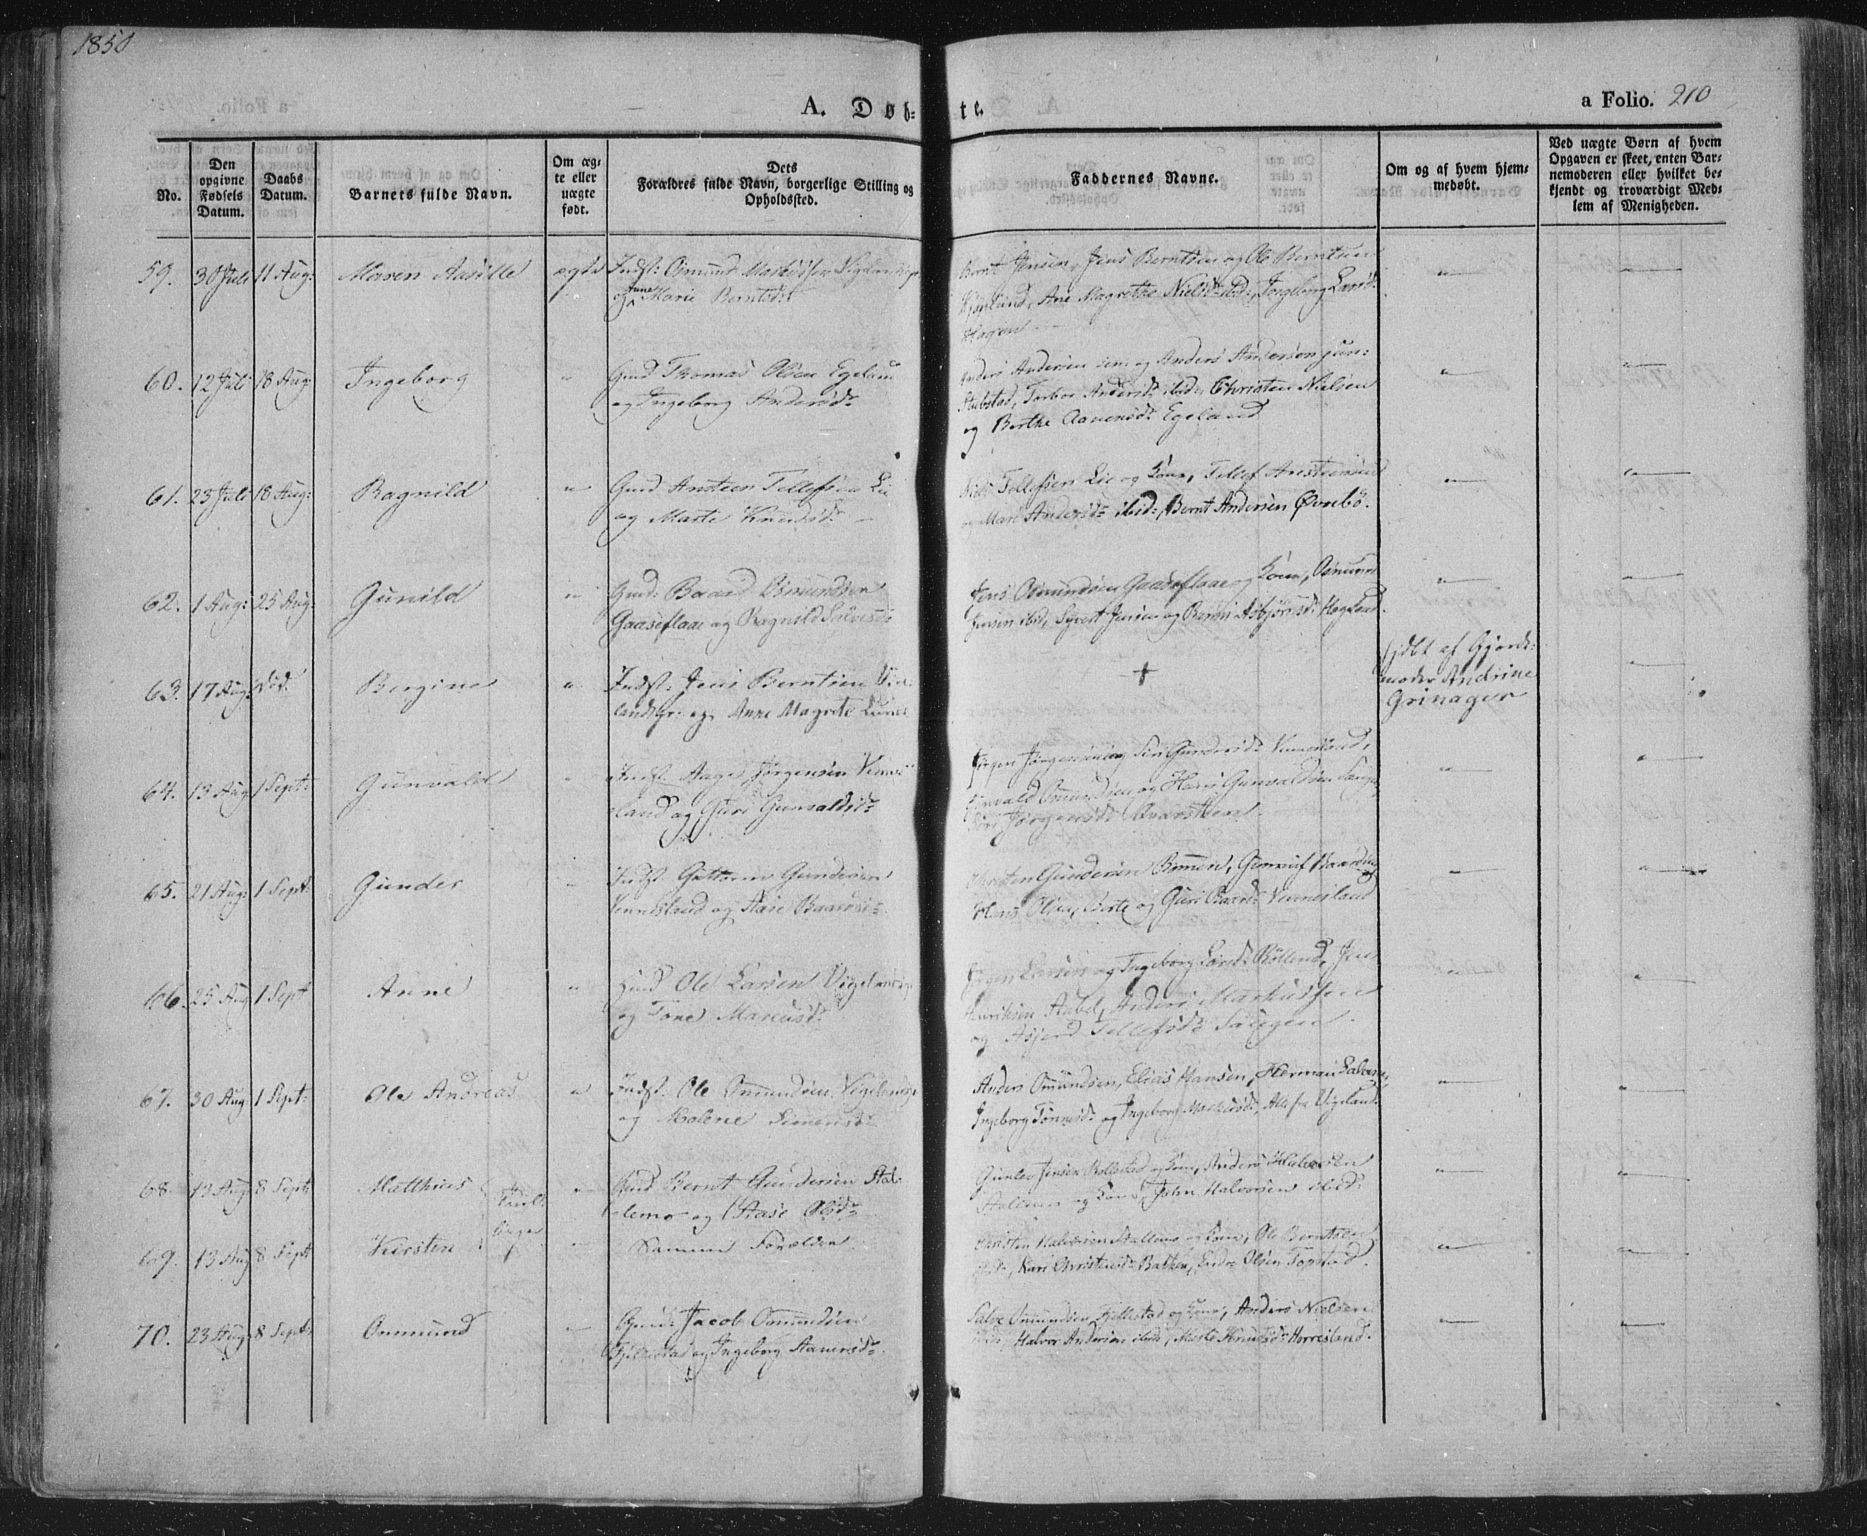 1850
A. Døb-
te.
a Folio. 210
No.
Den opgivne Fødsels Datum.
Daabs Datum.
Barnets fulde Navn.
Om ægte eller uægte født.
Dets Forældres fulde Navn, borgerlige Stilling og Opholdssted.
Faddernes Navne.
Om og af hvem hjemmedøbt.
Ved uægte Børn af hvem Opgaven er skeet, enten Barnemoderen eller hvilket bekjendt og troværdigt Medlem af Menigheden.
59. 30 Juli 11 Aug: Maren Aasille ægte Indst: Osmund
og Anne Marie Berntsd:
Bernt Jensen, Jens Berntsen og Ole Berntsen
Ane Magrethe Nielsd: ibid:, Ingeborg Larsd:
Hagen
60. 12 Juli 18 Aug: Ingeborg " Gmd Thomas Olsen Egeland
og Ingeborg Andersd:
Anders Andersen sen: og Anders Andersen jun:
Stubstad, Torbor Andersd: ibid:, Christen Nielsen
og Berthe Aanensd: Egeland
61. 23 Juli 18 Aug: Ragnild " Gmd Ansteen Tellefsen Lie
og Marte Knudsd:
Niels Tellefsen Lie og Kone, Tellef
og Mari Andersd: ibid:, Bernt Andersen Øvrebö.
62. 1 Aug: 25 Aug: Gunild " Gmd: Baard Osmundsen
Gaaseflaae og Ragnild Salvesd:
Jens Osmundsen Gaaseflaae og Kone, Osmund
Jensen ibid, Syvert Jensen og Asbjörnsd: Hægland.
63. 17 Aug: Död. Bergine " Indst: Jens Berntsen Vige-
landsgr: og Anne Magrete
+
hjdbt af Gjorde-
moder Andrine
Grinager
64. 13 Aug: 1 Sept: Gunvald " Indst: Aage Jörgensen Vennes-
land og Guri Gunvaldsd:
Jörgen Jörgensen og Siri Gundersd: Vennesland,
Gunvald Osmundsen og Hans Gunvaldsen
Jörgensd: Qvarsteen.
65. 21 Aug: 1 Sept: Gunder " Indst Guttorm Gundersen
Vennesland og Aase Baardsd:
Christen Gundersen Bommen,
Hans Olsen, Berte og Guri Baardsd: Vennesland
66. 25 Aug 1 Sept Anne " Gmd Ole Larsen
og Tone Marcusd:
Jörgen Larsen og Ingeborg Larsd: Röllend, Jens
Henriksen Aabel, Anders Markussen
og Asjerd Tellefsd:
67. 30 Aug 1 Sept: Ole Andreas " Indst: Ole Omundsen
og Malene Simensd:
Anders Omundsen, Elias Hansen, Herman Salvesen,
Ingeborg Tönnesd: og Ingeborg Markusd:, Alle fra Vigeland
68. 13 Aug 8 Sept: Matthias Tvil- " Gmd Bernt Gundersen Stal-
lemo og Aase Olsd:
Gunder Jensen og Kone, Anders Halvorsen
Stallemo og Kone, John Halvorsen ibid:
69. 13 Aug 8 Sept Kirsten linger " Samme Forældre
Christen Halvorsen Stallemo og Kone, Ole Berntsen
ibid:, Kari Christensd: Bakken, Endre Olsen Topstad.
70. 23 Aug 8 Sept: Omund " Gmd: Jacob Omundsen
og Ingeborg Aanensd:
Salve Omundsen og Kone, Anders Nielsen
ibid:, Halvor Andersen ibid:, Marte Knudsd: Horrisland.